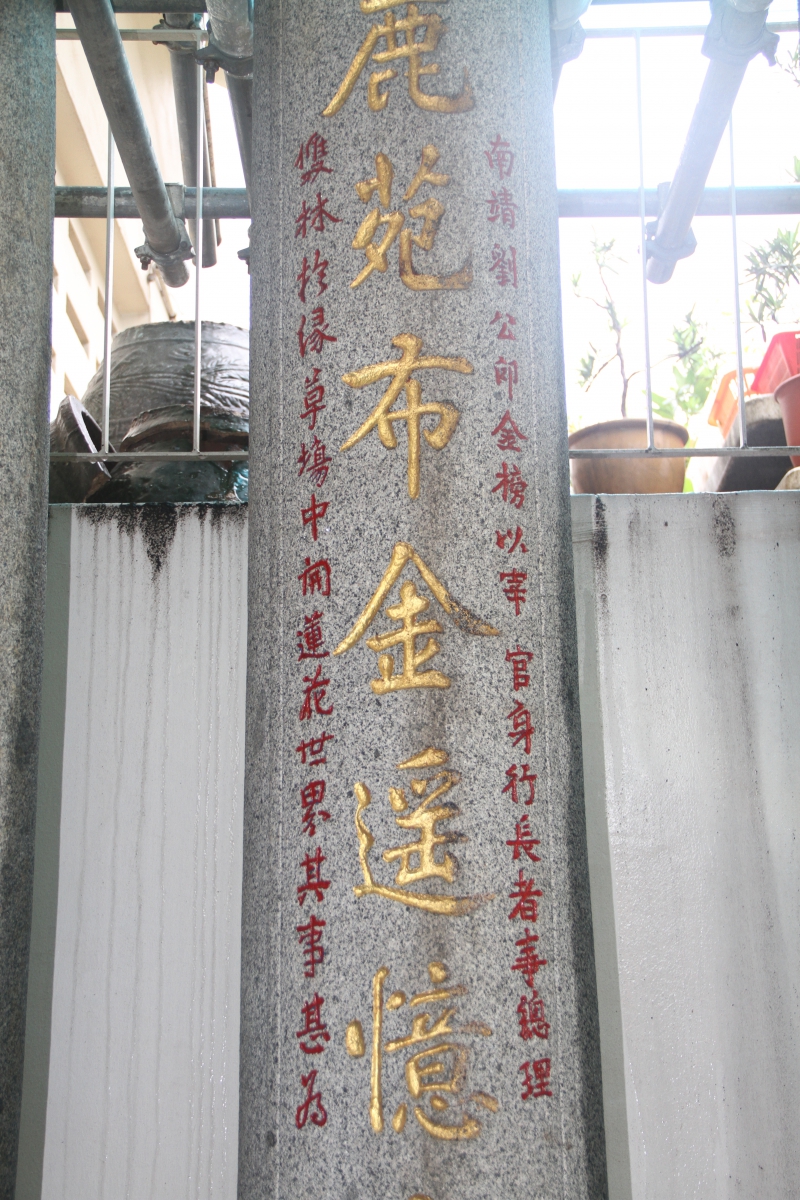 南靖劉公印金榜以宰官身行長者事總理
鹿苑布金遥憶
雙林於緑草塲中開蓮花世界其事甚為